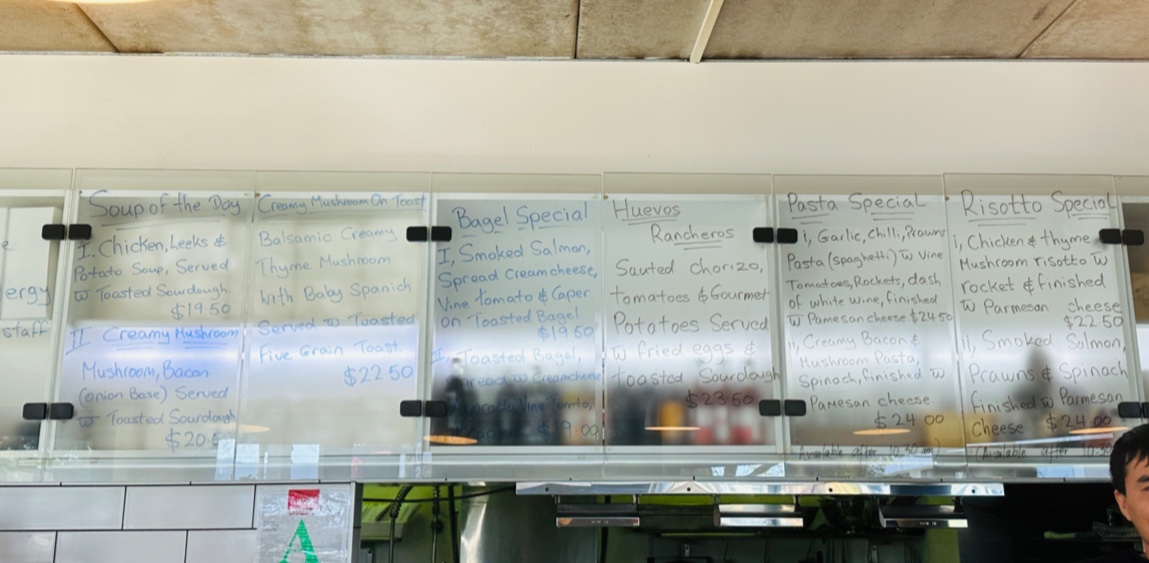 e
ergy
staff
Soup of the Day
I. Chicken, Leeks &
Potato Soup, Served
w Toasted Sourdough
$19.50
II Creamy Mushroom
Mushroom, Bacon
(onion Base) Served
w Toasted Sourdough
$20.5
Creamy Mushroom On Toast
Balsamic Creamy
Thyme Mushroom
With Baby Spanich
Served w Toasted
Five Grain Toast.
$22.50
Bagel Special
I, Smoked Salmon,
Spread Creamcheese,
Vine tomato & Caper
on Toasted Bagel
$19.50
II, Toasted Bagel,
Spread w Creamcheese
Avocado Vine Tomto,
$19.00
Huevos
Rancheros
Sauted Chorizo,
Tomatoes & Gourmet
Potatoes Served
w fried eggs &
toasted Sourdough
$23.50
Pasta Special
i, Garlic, Chilli, Prawns
Pasta (spaghetti) w Vine
Tomatoes, Rockets, dash
of white wine, finished
w Pamesan cheese $24.50
ii, Creamy Bacon &
Mushroom Pasta,
Spinach, finished w
Pamesan cheese
$24.00
(Available after 10.30 am)
Risotto Special
i, Chicken & thyme
Mushroom risotto w
rocket & finished
w Parmesan cheese
$22.50
ii, Smoked Salmon,
Prawns & Spinach
finished w Parmesan
Cheese $24.00
(Available after 10.30
A